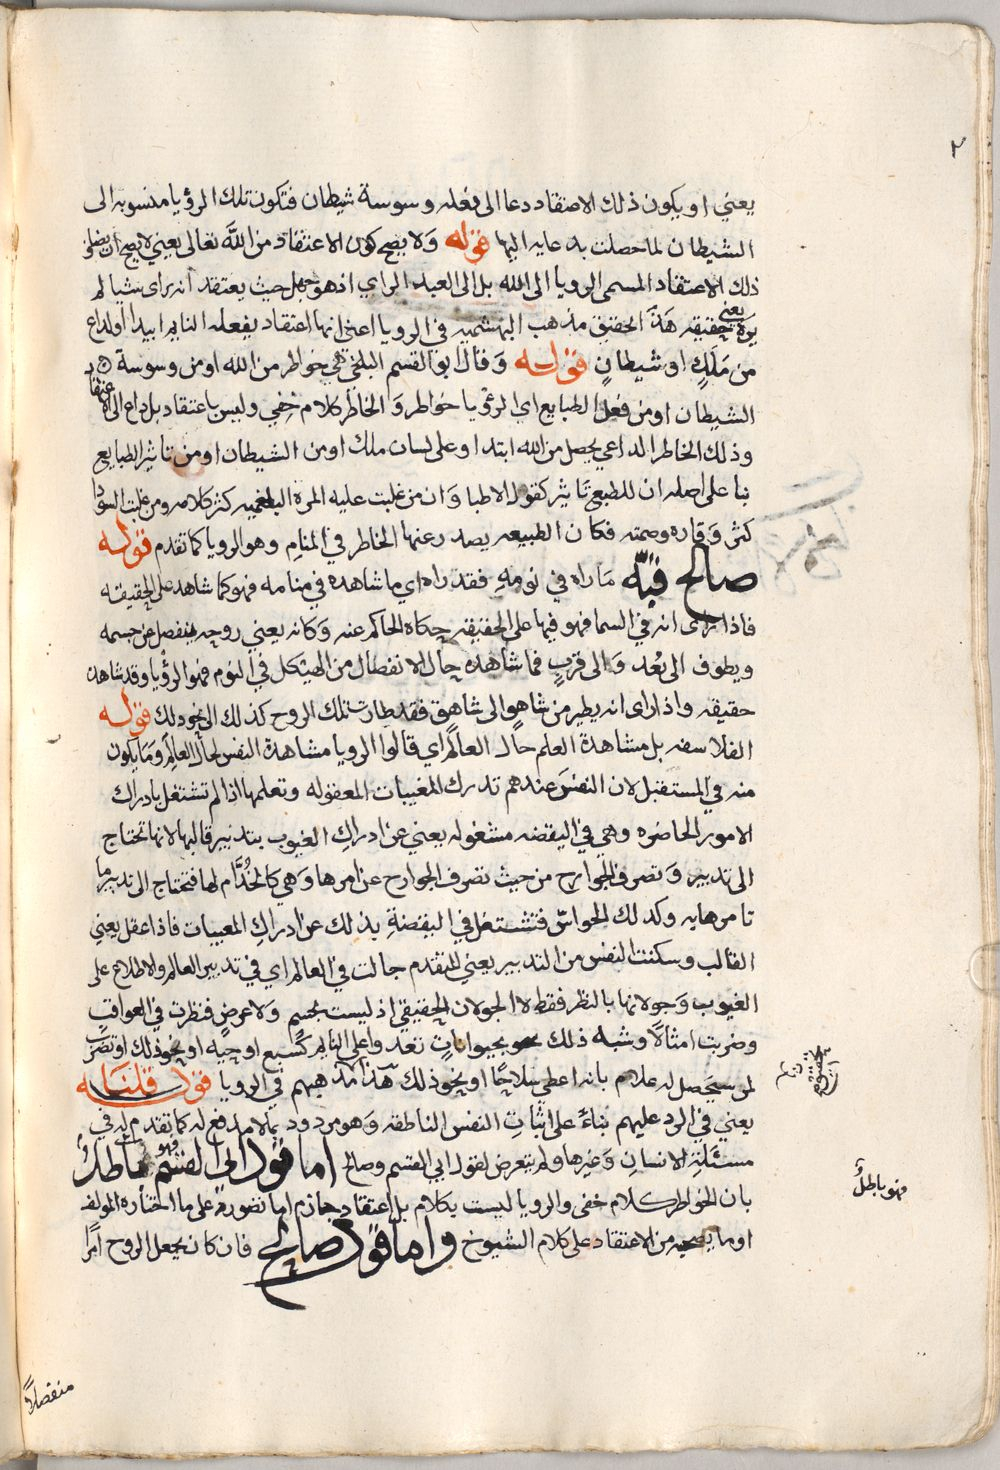 ٢
يعني او يكون ذلك الاعتقاد دعا الى فعله وسوسة شيطان فتكون تلك الرؤيا منسوبه الى
الشيطان لما حصلت بدعايه اليها قوله ولا يصح كون الاعتقاد من الله تعالى يعني لا يصح ان يضاف
ذلك الاعتقاد المسمى الرويا الى الله بل الى العبد الراي اذ هو جهل حيث يعتقد انه راى شيا لم
يره حقيقه هذا يعني الحقيق مذهب البهشميه في الرويا اعني انها اعتقاد يفعله النايم ابتدا او لداع
من ملك او شيطان قوله وقال ابو القسم البلخي هي خواطر من الله او من وسوسة
الشيطان او من فعل الطبايع اي الرؤيا خواطر والخاطر كلام خفي وليس باعتقاد بل داع الى الاعتقاد
وذلك الخاطر الداعي يحصل من الله ابتدا او على لسان ملك او من الشيطان او من تاثير الطبايع
بنا على اصله ان للطبع تاثير كقول الاطبا وان من غلبت عليه المرة البلغميه كثر كلامه ومن غلبت السودا
كثر وقاره وصمته فكان الطبيعه يصدر عنها الخاطر في المنام وهو الرويا كما تقدم قوله
صالح قبه ما راه في نومه فقد راه اي ما شاهده في منامه فهو كما شاهد على الحقيقه
فاذا راى انه في السما فهو فيها على الحقيقه حكاه الحاكم عنه وكانه يعني روحه ينفصل عن جسمه
ويطوف الى بعد والى قرب فما شاهده حال الانفصال من الهيكل في النوم فهو الرؤيا وقد شاهده
حقيقه واذا راى انه يطير من شاهق الى شاهق فقد طارت تلك الروح كذلك الى نحو ذلك قوله
الفلاسفه بل مشاهدة العلم حال العالم اي قالوا الرويا مشاهدة النفس لحال العالم وما يكون
منه في المستقبل لان النفس عندهم تدرك المغيبات المعقوله وتعلمها اذا لم تشتغل بادراك
الامور الحاضره وهي في اليقضه مشغوله يعني عن ادراك الغيوب بتدبير قالبها لانها تحتاج
الى تدبير وتصرف الجوارح من حيث تصرف الجوارح عن امرها وهي كالخدام لها فتحتاج الى تدبير ما
تامرها به وكذلك الحواس فتشتغل في اليقضة بذلك عن ادراك المغيبات فاذا عقل يعني
القالب وسكنت النفس من التدبير يعني المتقدم جالت في العالم اي في تدبير العالم والاطلاع على
الغيوب وجولانها بالنظر فقط لا الجولان الحقيقي اذ ليست بجسم ولا عرض فنظرت في العواقب
وضربت امثالا وشبه ذلك بحيوانات تعدوا على النايم كسبع او حيه او نحو ذلك او تضرب
لمن سيحصل له غلام بانه اعطي سلاحا او نحو ذلك هذا مذهبهم في الرويا قوله قلنا
يعني في الرد عليهم بناء على اثبات النفس الناطقه وهو مردود بما لا مدفع له كما تقدم له في
مسئلة الانسان وغيرها ولم يتعرض لقول ابي القسم وصالح اما قول ابي القسم فهو باطل
بان الخواطر كلام خفي والرويا ليست بكلام بل اعتقاد جازم اما تصوره على ما اختاره المولف
او ما يصحبه من الاعتقاد على كلام الشيوخ واما قول صالح فان كان يجعل الروح امرا
فهو باطل
منفصلا